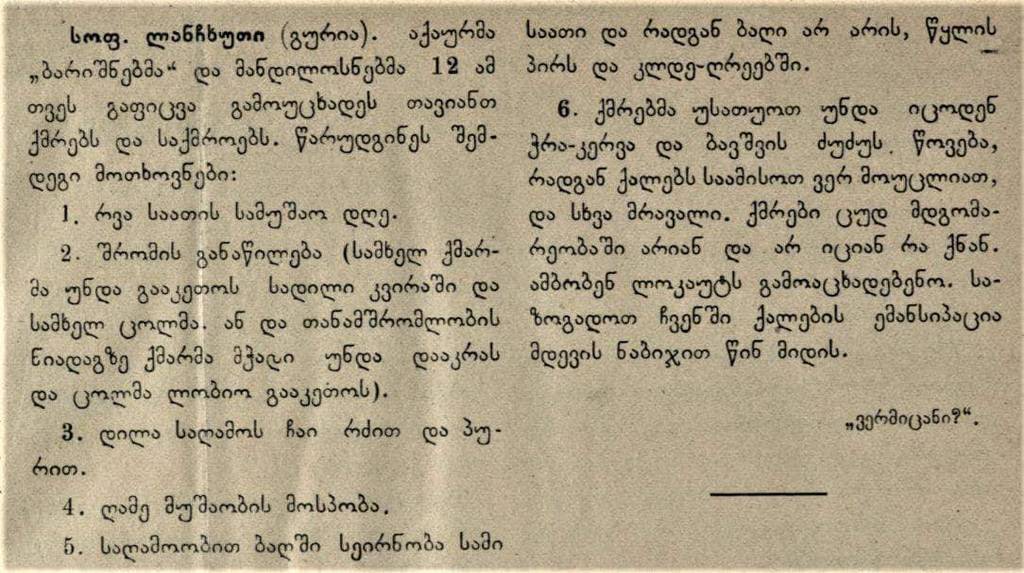 სოფ. ლანჩხუთი (გურია). აქაურმა
„ბარიშნებმა“ და მანდილოსნებმა 12 ამ
თვეს გაფიცვა გამოუცხადეს თავიანთ
ქმრებს და საქმროებს. წარუდგინეს შემ-
დეგი მოთხოვნები:
1. რვა საათის სამუშაო დღე.
2. შრომის განაწილება (სამხელ ქმარ-
მა უნდა გააკეთოს სადილი კვირაში და
სამხელ ცოლმა. ან და თანამშრომლობის
ნიადაგზე ქმარმა მჭადი უნდა დააკრას
და ცოლმა ლობიო გააკეთოს).
3. დილა საღამოს ჩაი რძით და პუ-
რით.
4. ღამე მუშაობის მოსპობა.
5. საღამოობით ბაღში სეირნობა სამი
საათი და რადგან ბაღი არ არის, წყლის
პირს და კლდე-ღრეებში.
6. ქმრებმა უსათუოთ უნდა იცოდენ
ჭრა-კერვა და ბავშვის ძუძუს წოვება,
რადგან ქალებს საამისოთ ვერ მოუცლიათ,
და სხვა მრავალი. ქმრები ცუდ მდგომა-
რეობაში არიან და არ იციან რა ქნან.
ამბობენ ლოკაუტს გამოაცხადებენო. სა-
ზოგადოთ ჩვენში ქალების ემანსიპაცია
მდევის ნაბიჯით წინ მიდის.
„ვერმიცანი?“.